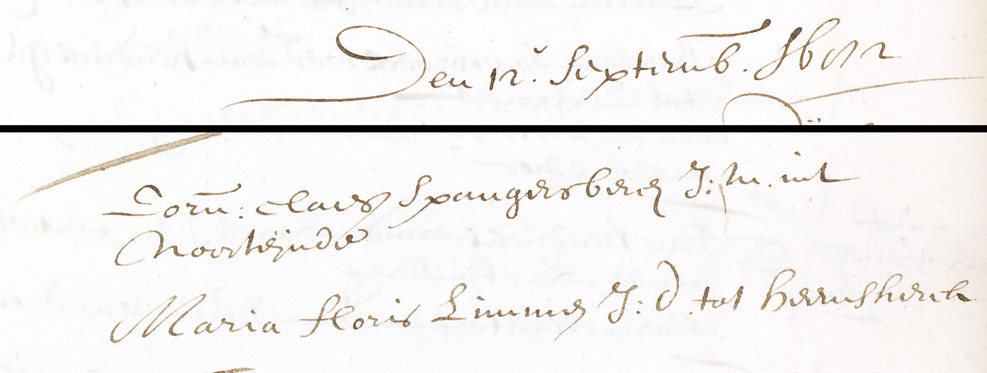 Den 12. Septemb. 1672
Corn: claes Spangersberch J: M. int
Noorteijnde
Maria floris Limmen J: D tot Heemskerck